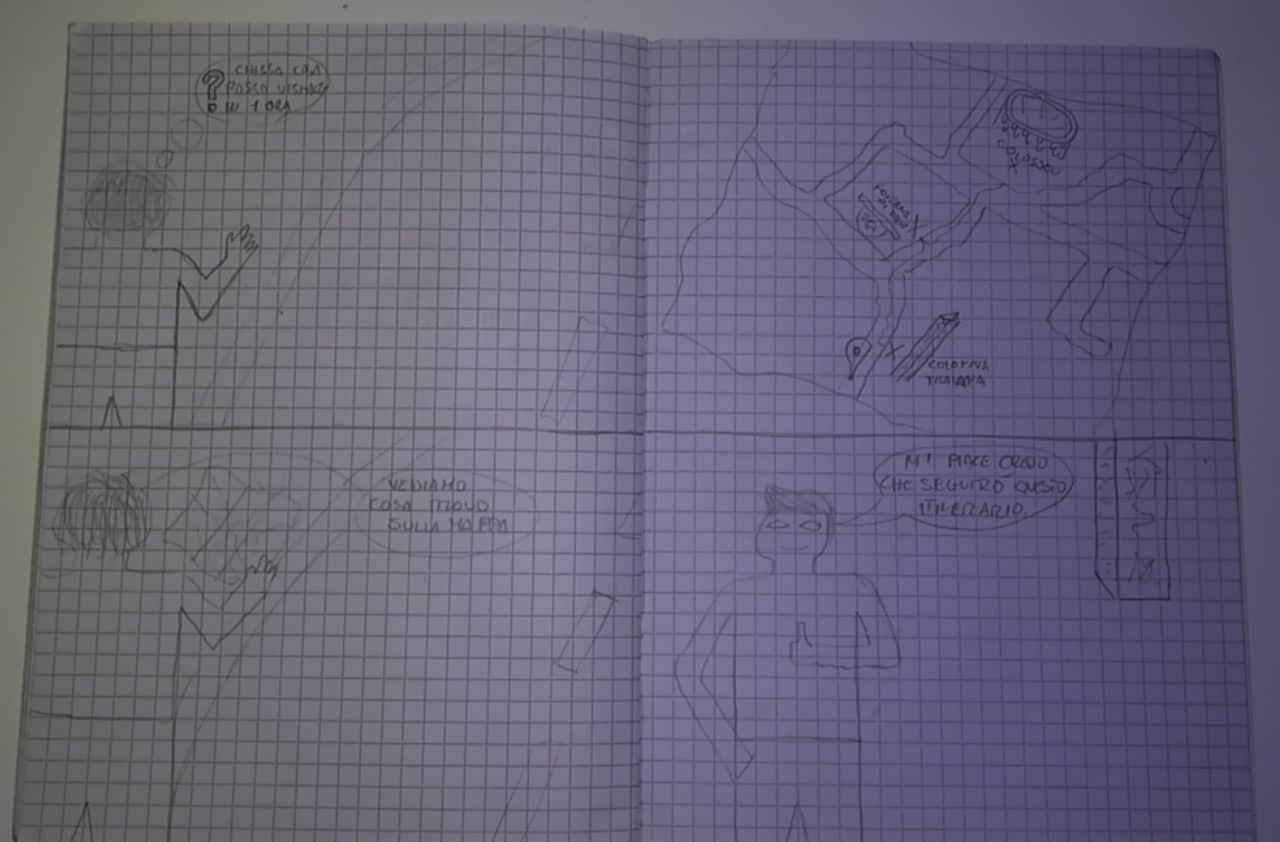 ?
CHISSA COSA
POSSO VISITARE
IN 1 ORA
COLOSSEO
X
FONTANA
DI TREVI
X
X
COLONNA
TRAIANA
VEDIAMO
COSA TROVO
SULLA MAPPA
MI PIACE CREDO
CHE SEGUIRÒ QUESTO
ITINERARIO